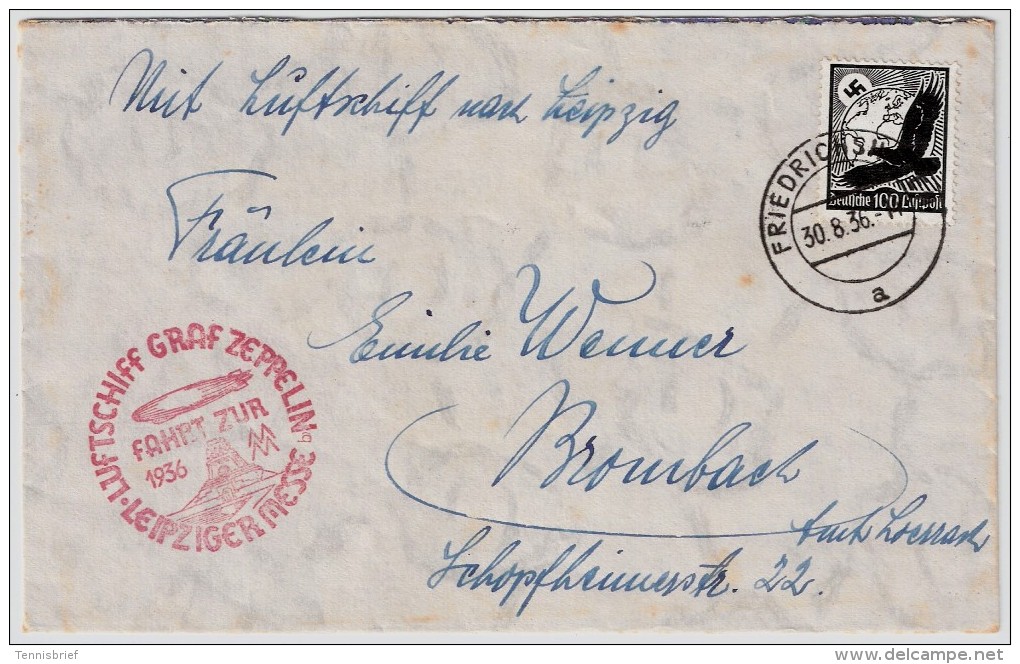 Mit Luftschiff nach Leipzig
Deutsche 100 Luftpost
FRIEDRICHSH
30.8.36.-11
a
Fräulein
Emilie Wenner
LUFTSCHIFF GRAF ZEPPELIN
FAHRT ZUR
1936
MM
LEIPZIGER MESSE
Brombach
Amt Loerrach
Schopfheimerstr. 22.
Tennisbrief
delcampe.net